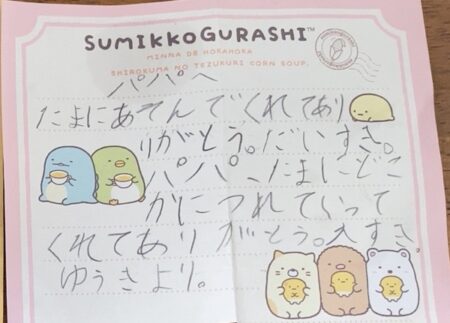 SUMIKKOGURASHI™
MINNA DE HOKAHOKA
SHIROKUMA NO TEZUKURI CORN SOUP.
パパへ
たまにあそんでくれてあり
りがとう。だいすき。
パパ、たまにどこ
かにつれていって
くれてありがとう。大すき
ゆうきより。